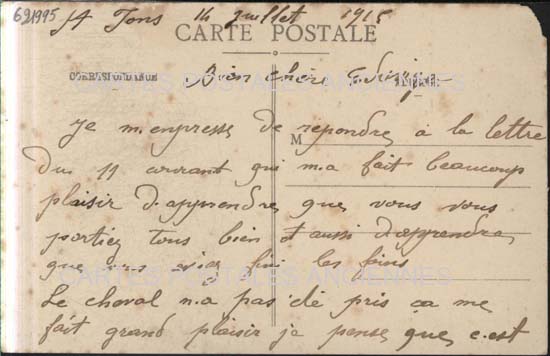 621995
St Fons 14 juillet 1915
CARTE POSTALE
CORRESPONDANCE
Bien chère
CARTES POSTALES ANCIENNES
Je m.enpresse de repondre à la lettre
M
Du 11 courant qui m.a fait beaucoup
plaisir d.apprendre que vous vous
portiez tous bien et aussi d'apprendre
que vous aviez fini les foins
CARTES POSTALES ANCIENNES
Le cheval n.a pas été pris ca me
fait grand plaisir je pense que c.est